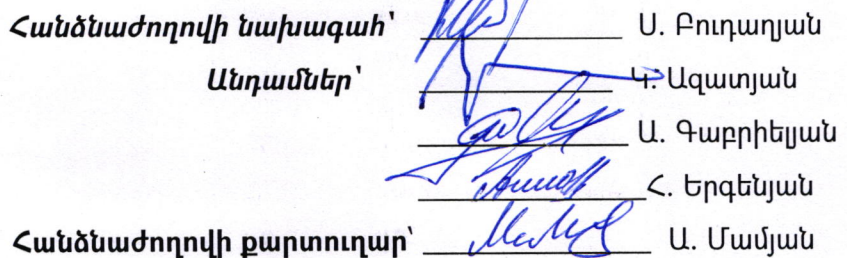 Հանձնաժողովի նախագահ՝ Ս. Բուդաղյան
Անդամներ՝ Կ. Ազատյան
Ա. Գաբրիելյան
Հ. Երգենյան
Հանձնաժողովի քարտուղար՝ Ա. Մամյան